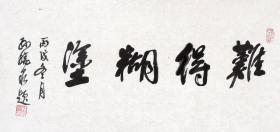 難得糊塗
丙戌冬月